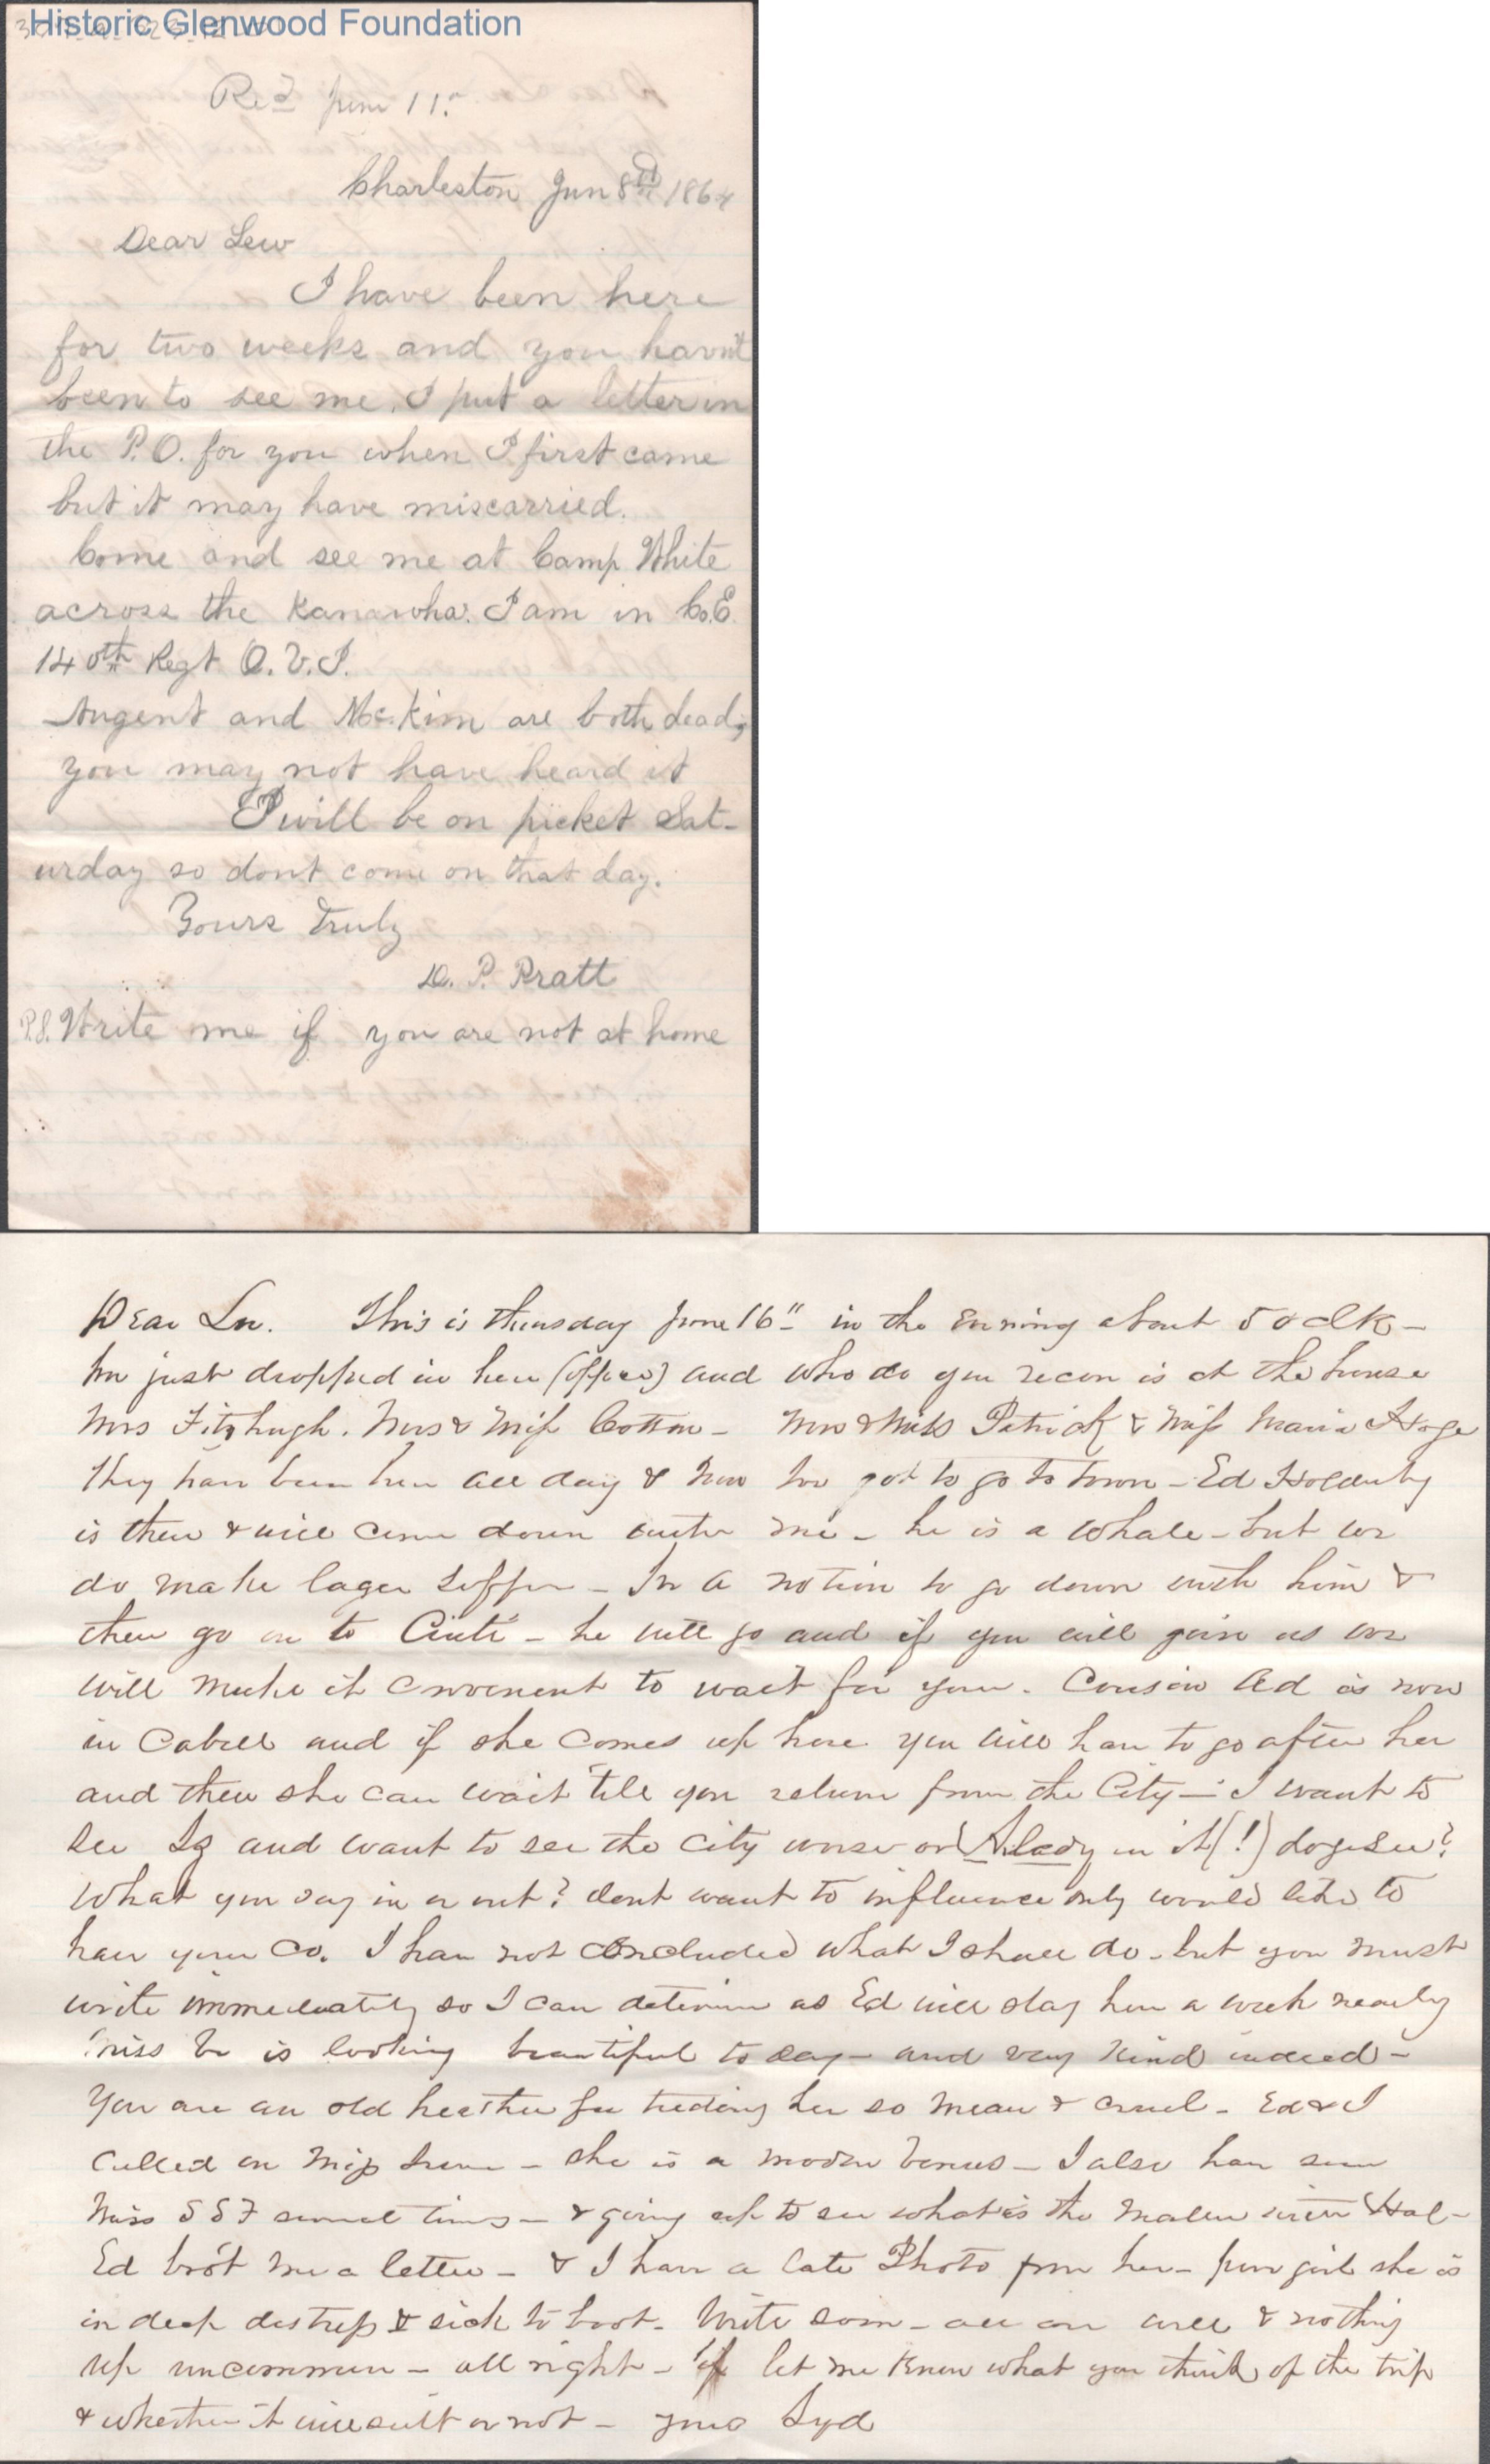 Historic Glenwood Foundation
Rec'd June 11th
Charleston Jun 8th 1864
Dear Lew
I have been here
for two weeks and you havn't
been to see me. I put a letter in
the P.O. for you when I first came
but it may have miscarried.
Come and see me at Camp White
across the Kanawha. I am in Co. E
140th Regt O. V. I.
Nugent and McKim are both dead,
you may not have heard it
I will be on picket Sat-
urday so dont come on that day.
Yours Truly
D. P. Pratt
P.S. Write me if you are not at home
Dear Lu. This is thursday June 16" in the Evening about 5 oclk -
Im just dropped in here (office) and who do you recon is at the house
Mrs Fitzhugh. Mrs & Miss Cotton - Mrs & Miss Patrick & Miss Maria Hoge
They have been here all day & now have got to go to town - Ed Holderby
is there & will come down after me - he is a whale - but we
do make lager suffer - Im a notion to go down with him &
then go on to Cinti - he will go and if you will join us we
will make it convenient to wait for you. Cousin Ad is now
in Cabell and if she comes up here you will have to go after her
and then she can wait till you return from the City - I want to
see Ig and want to see the City worse or (A lady in it(!) doyesee?
What you say in or out? dont want to influence only would like to
have your Co. I have not concluded what I shall do - but you must
write immediately so I can determine as Ed will stay here a week nearly
Miss is looking beautiful to day - and very kind indeed -
You are an old heathen for treating her so mean & cruel - Ed & I
called on Miss - she is a modern Venus - I also have seen
Miss S S F several times - & going up to see what is the matter with Hal -
Ed bro't me a letter - & I have a late Photo from her - poor girl she is
in deep distress & sick to boot. Write soon - all are well & nothing
up uncommon - all right - let me know what you think of the trip
& whether it will suit or not - yours Syd